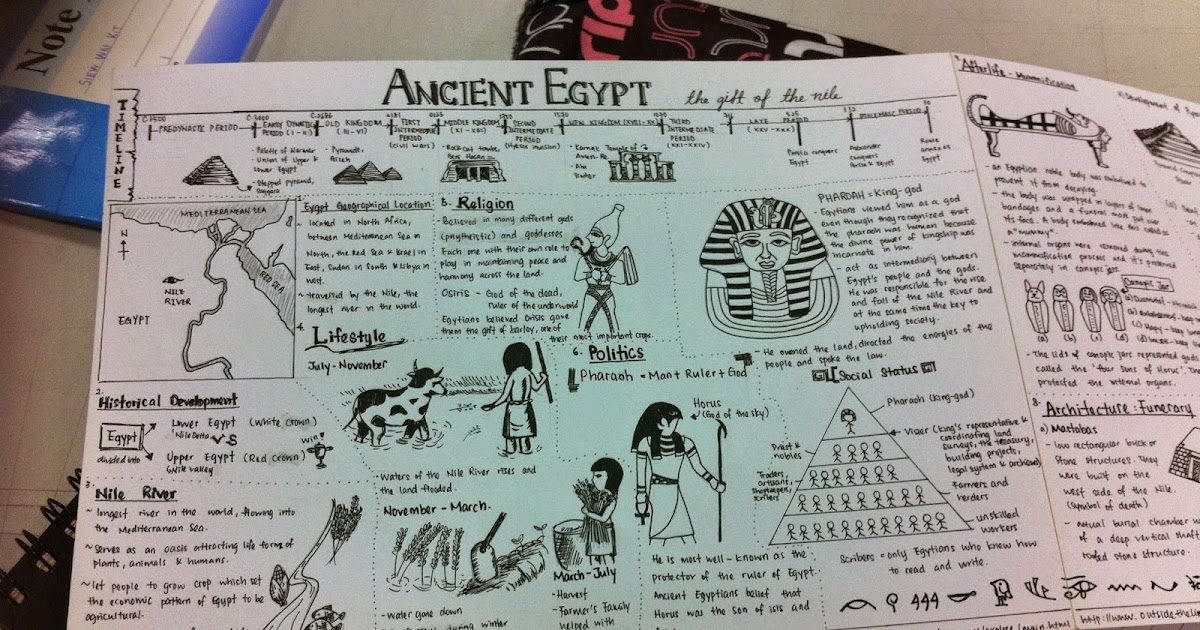 Note
ANCIENT EGYPT the gift of the nile
TIMELINE
PREDYNASTIC PERIOD
EARLY DYNASTIC PERIOD (I-II)
OLD KINGDOM (III-VI)
FIRST INTERMEDIATE PERIOD (civil wars)
MIDDLE KINGDOM (XI-XII)
SECOND INTERMEDIATE PERIOD
NEW KINGDOM
THIRD INTERMEDIATE PERIOD (XXI-XXIV)
LATE PERIOD (XXV-XXX)
PTOLEMAIC PERIOD
- Union of Upper & Lower Egypt
- Stepped pyramid,
- Pyramids,
- Rock-cut tombs,
- Karnak Temple of
Persia conquers Egypt
Alexander conquers
Rome annexes Egypt
MEDITERRANEAN SEA
N
RED SEA
NILE RIVER
EGYPT
1. Eygpt Geographical Location
~ located in North Africa,
between Mediterranean Sea in
North, the Red Sea & Israel in
East, Sudan in South & Libya in
west.
~ travelled by the Nile, the
longest river in the world.
2.
Historical Development
Egypt
divided into
Lower Egypt (White crown)
Nile Delta
VS
Upper Egypt (Red crown)
Nile valley
win!
3.
Nile River
~ longest river in the world, flowing into
the Mediterranean Sea.
~ Serves as an oasis attracting life forms of
plants, animals & humans.
~ let people to grow crop which set
the economic pattern of Egypt to be
agricultural.
4.
Lifestyle
July-November
Waters of the Nile River rises and
the land flooded.
November - March.
- Water gone down
during winter
March - July
- Harvest
- Farmer's Family
helped with
5. Religion
Believed in many different gods
(polytheistic) and goddesses
Each one with their own role to
play in maintaining peace and
harmony across the land.
Osiris - God of the dead,
ruler of the underworld
Egytians believed Orisis gave
them the gift of barley, one of
their most important crops.
6. Politics
Pharaoh = Man + Ruler + God
Horus
(God of the sky)
He is most well-known as the
protector of the ruler of Egypt.
Ancient Egyptians belief that
Horus was the son of isis and
PHARAOH = King-god
- Egytians viewed him as a god
even though they recognized that
the pharaoh was human because
the divine power of kingship was
incarnate in him.
- act as intermediary between
Egypt's people and the gods.
He was responsible for the rise
and fall of the Nile River and
at the same time the key to
upholding society.
- He owned the land, directed the energies of the
people and spoke the law.
Social Status
Pharaoh (king-god)
Vizier (king's representative &
coordinating land
surveys, the treasury,
building projects,
legal system & archives)
Priest & nobles
Traders, artisans, shopkeepers, scribes
Farmers and herders
unskilled workers
Scribers = only Egytians who know how
to read and write.
Afterlife - Mummification
- an Egytian noble body was embalmed to
prevent it from decaying.
- the body was wrapped in layers of linen
bandages and a funeral mask put over
its face. A body embalmed like this called a
"mummy".
- internal organs were removed during the
mummification process and
separately in canopic jars.
Canopic Jar
(a) (b) (c) (d)
- The lids of canopic jars represented gods
called the 'four sons of Horus'. They
protected the internal organs.
8.
Architecture = Funerary
a) Mastabas
- low rectangular brick or
stone structures. They
were built on the
west side of the Nile.
(symbol of death)
- actual burial chamber
of a deep vertical shaft
stone structure.
http://www.outside